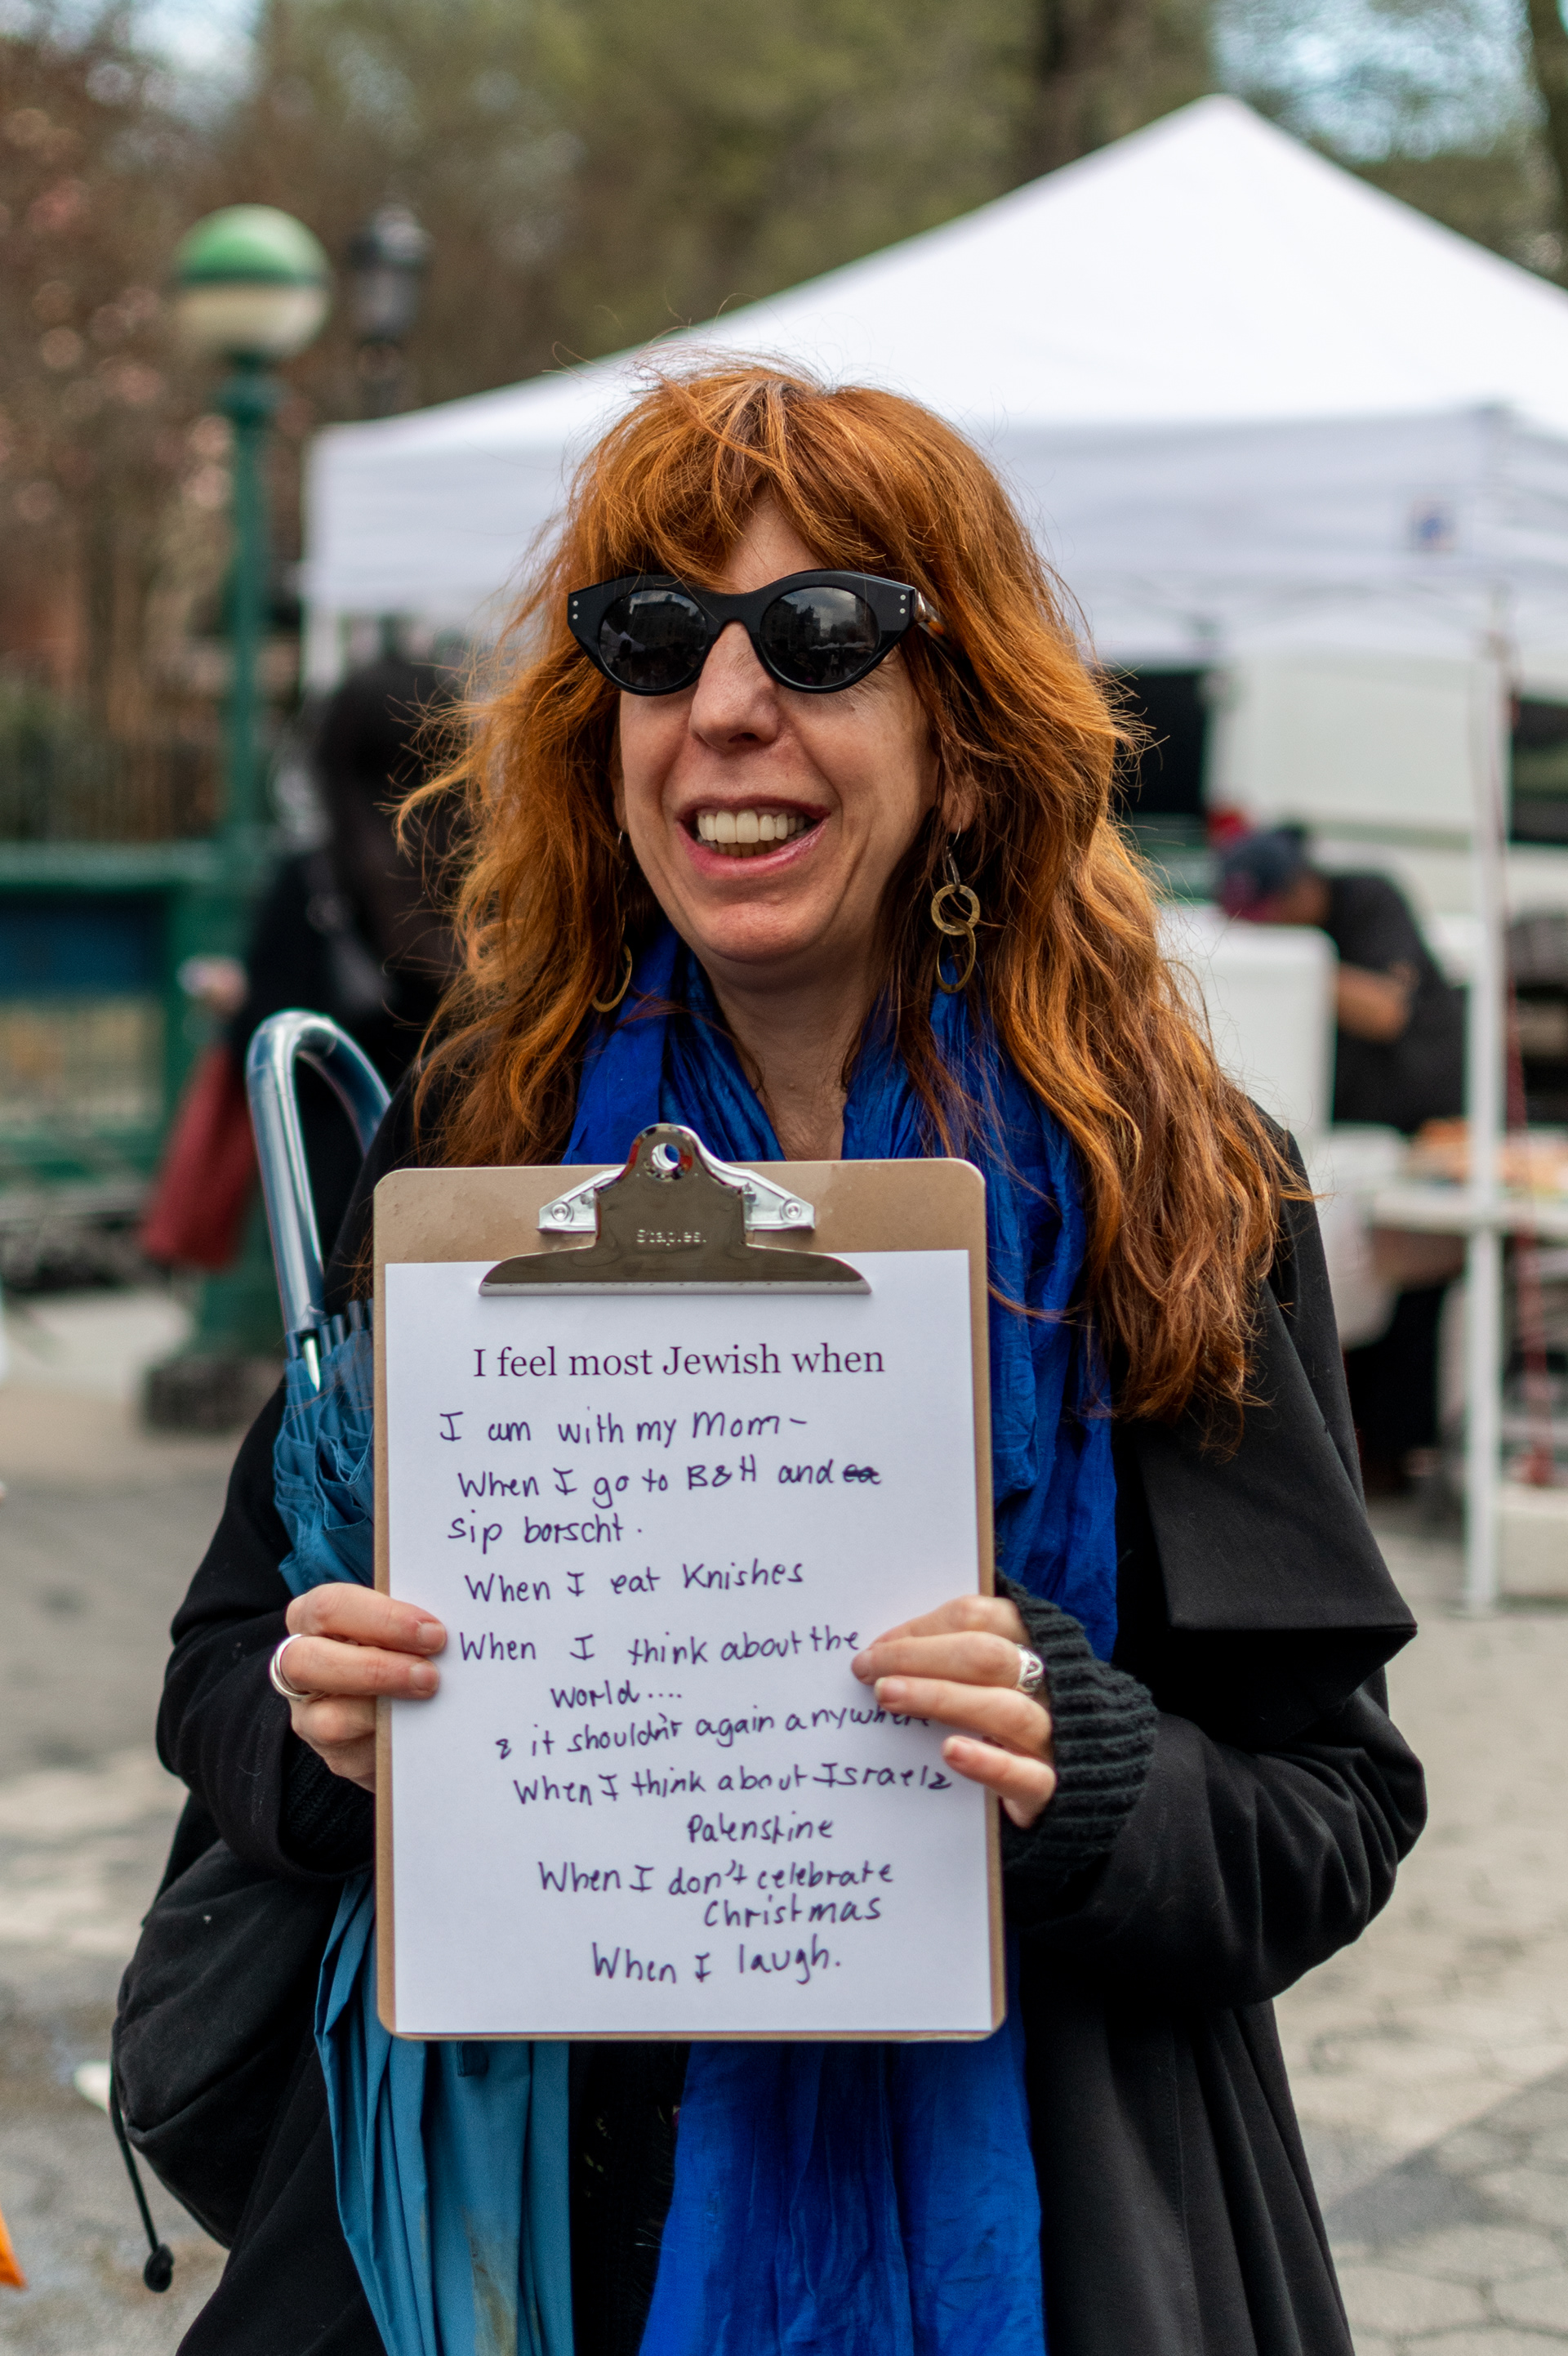 Staples.
I feel most Jewish when
I am with my Mom-
When I go to B&H and ea
sip borscht.
When I eat Knishes
When I think about the
World....
& it shouldn't again anywhere
When I think about Israel &
Palenstine
When I don't celebrate
Christmas
When I laugh.